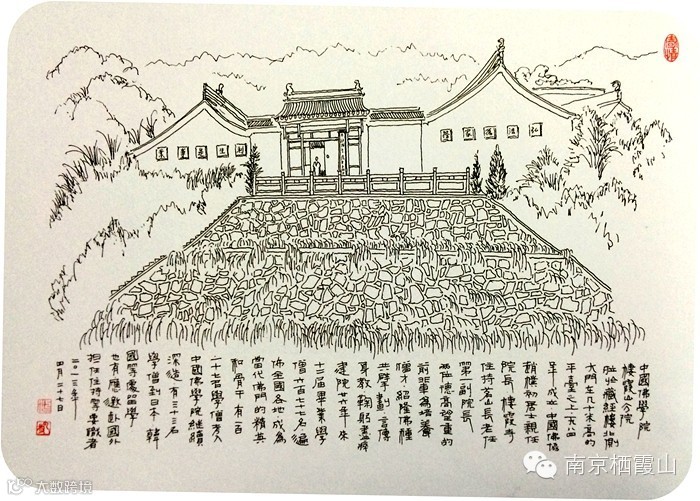 中國佛學院
棲霞山分院
藏經樓北側
大門在几十米高的
平臺之上一九八四
年成立中國佛協
趙樸初居士親任
院長棲霞寺
住持茗山長老任
第一副院長
兩位德高望重的
前輩為培養
僧才紹隆佛種
共擘劃言傳
身教鞠躬盡瘁
建院廿九年來
十三屆畢業學
僧六百二十七名遍
佈全國各地成為
當代佛門的精英
和骨干有一百
二十七名學僧考入
中國佛學院繼續
深造有三十三名
學僧到日本韓
國等處留學
也有應邀赴國外
擔任住持等要職者
二〇一三年
四月二十七日
大数跨境
南京栖霞山